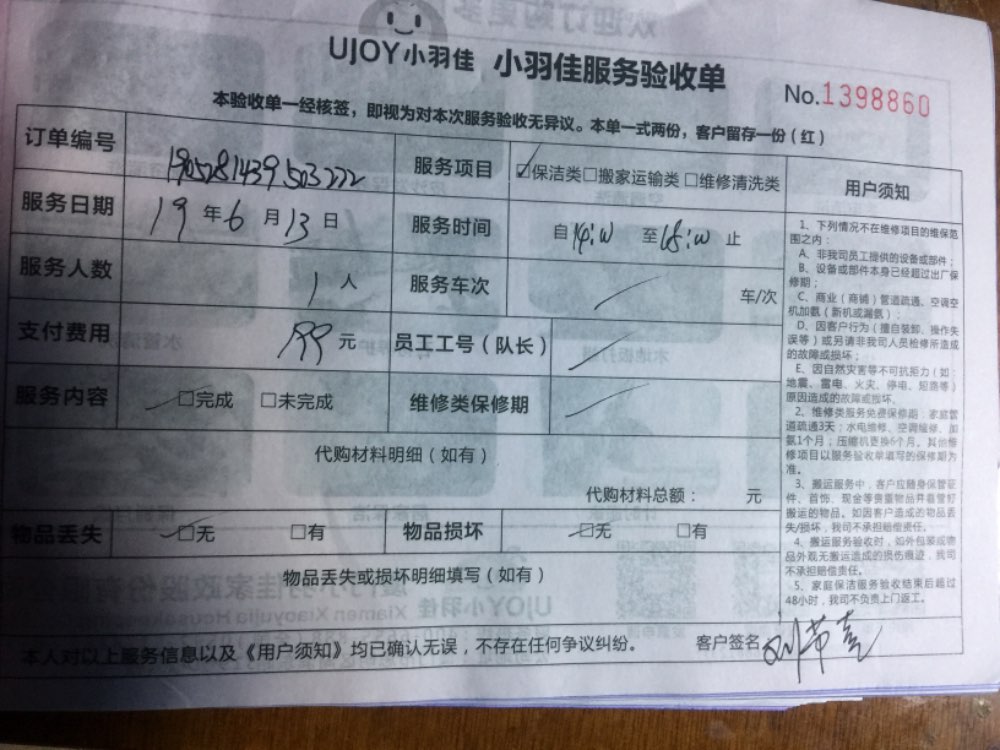 UJOY小羽佳 小羽佳服务验收单
No.1398860
本验收单一经核签，即视为对本次服务验收无异议。本单一式两份，客户留存一份（红）
订单编号 1905281439503222 服务项目 ☑保洁类□搬家运输类□维修清洗类 用户须知
服务日期 19年6月13日 服务时间 自14:00 至18:00 止
服务人数 1人 服务车次 车/次
支付费用 199元 员工工号（队长）
服务内容 □完成 □未完成 维修类保修期
代购材料明细（如有）
代购材料总额： 元
物品丢失 □无 □有 物品损坏 □无 □有
物品丢失或损坏明细填写（如有）
1、下列情况不在维修项目的维保范
围之内：
A、非我司员工提供的设备或部件；
B、设备或部件本身已经超过出厂保
修期；
C、商业（商铺）管道疏通、空调空
机加氨（新机或漏氨）；
D、因客户行为（擅自装卸、操作失
误等）或另请非我司人员检修所造成
的故障或损坏；
E、因自然灾害等不可抗拒力（如：
地震、雷电、火灾、停电、短路等）
原因造成的故障或损坏。
2、维修类服务免费保修期：家庭管
道疏通3天；水电维修、空调维修、加
氨1个月；压缩机更换6个月。其他维
修项目以服务验收单填写的保修期为
准。
3、搬运服务中，客户应随身保管证
件、首饰、现金等贵重物品并看管好
搬运的物品。如因客户造成的物品丢
失/损坏，我司不承担赔偿责任。
4、搬运服务验收时，如外包装或物
品外观无搬运造成的损伤痕迹，我司
不承担赔偿责任。
5、家庭保洁服务验收结束后超过
48小时，我司不负责上门返工。
本人对以上服务信息以及《用户须知》均已确认无误，不存在任何争议纠纷。 客户签名